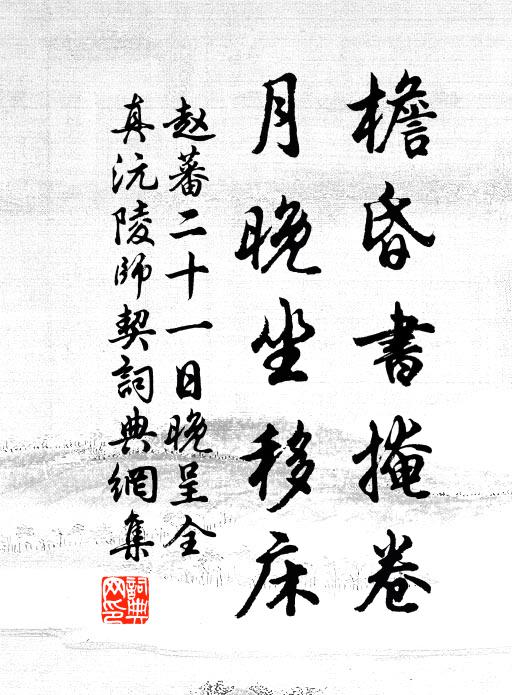 檐昏書掩卷
月晚坐移床
赵蕃二十一日晚呈全
真沅陵師契詞典網集
詞典网印